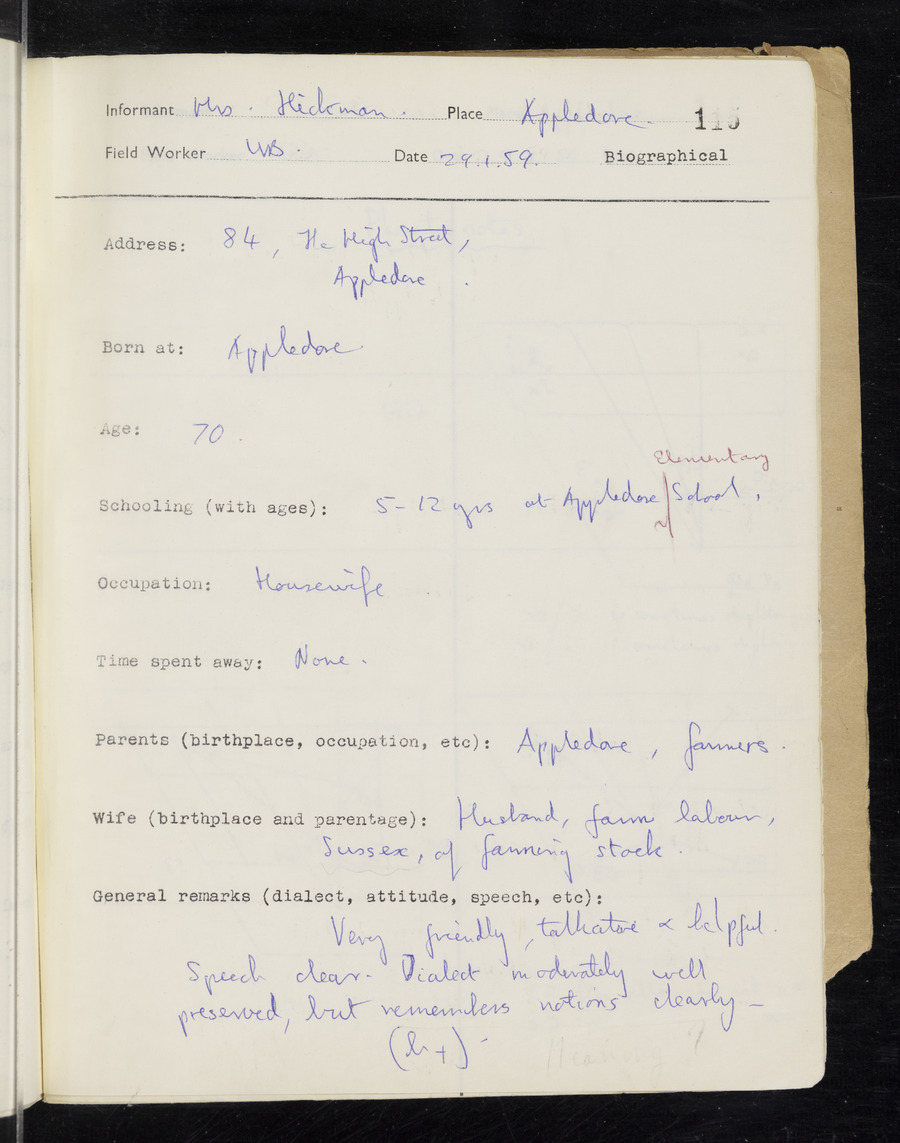 Informant Mrs. Hickman. Place Appledore. 115
Field Worker WB. Date 29.1.59. Biographical
Address: 84, The High Street,
Appledore.
Born at: Appledore
Age: 70.
Elementary
Schooling (with ages): 5-12 yrs at Appledore School,
Occupation: Housewife.
Time spent away: None.
Parents (birthplace, occupation, etc): Appledore, farmers.
Wife (birthplace and parentage): Husband, farm labour,
Sussex, of farming stock.
General remarks (dialect, attitude, speech, etc):
Very friendly, talkative & helpful.
Speech clear. Dialect moderately well
preserved, but remembers notions clearly -
Hearing ?